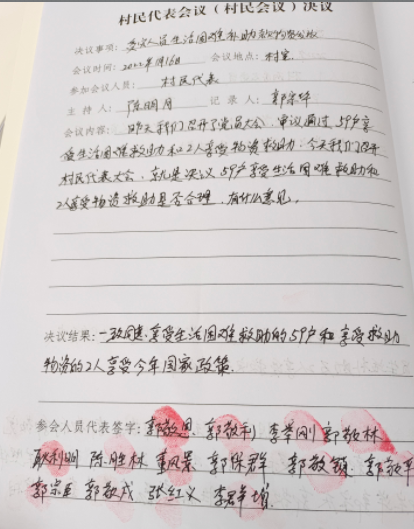 村民代表会议（村民会议）决议
决议事项：受灾人员生活困难补助款物发放
会议时间：2022年11月16日 会议地点：村室
参加会议人员：村民代表
主 持 人：陈明月 记 录 人：郭宗华
会议内容：昨天我们召开了党员大会，审议通过59户享
受生活困难救助和2人享受物资救助，今天我们召开
村民代表大会，就是决议59户享受生活困难救助和
2人享受物资救助是否合理，有什么意见。
决议结果：一致同意享受生活困难救助的59户和享受救助
物资的2人享受今年国家政策.
参会人员代表签字：郭敬恩 郭敬利 李学刚 郭敬林
耿利明 陈胜林 郭保群 郭敬镇 郭敬平
郭宗臣 郭敬成 张红义 李群增